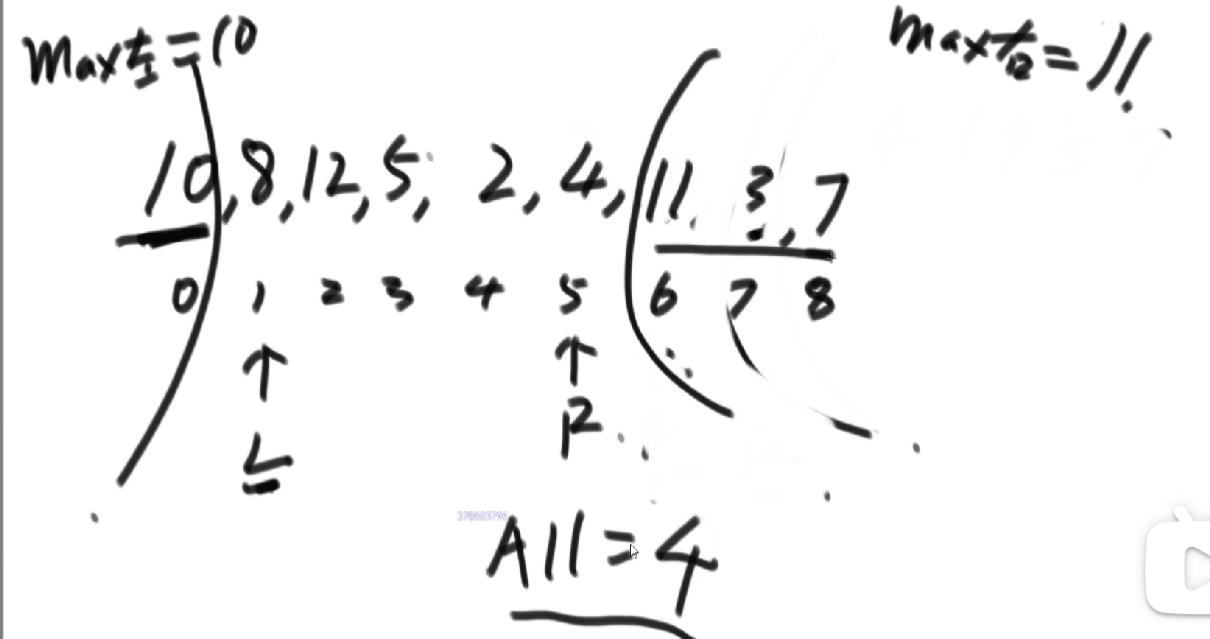 Max左=10
max右=11
10,8,12,5, 2,4,11, 3,7
0 1 2 3 4 5 6 7 8
↑ ↑
L R
All=4